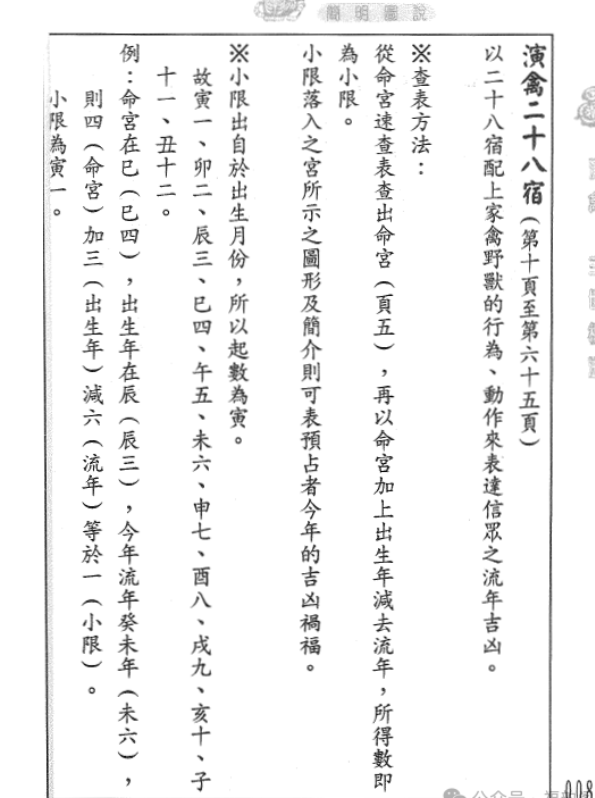 簡明圖說
演禽二十八宿(第十頁至第六十五頁)
以二十八宿配上家禽野獸的行為、動作來表達信眾之流年吉凶。
※查表方法：
從命宮速查表查出命宮(頁五)，再以命宮加上出生年減去流年，所得數即
為小限。
小限落入之宮所示之圖形及簡介則可表預占者今年的吉凶禍福。
※小限出自於出生月份，所以起數為寅。
故寅一、卯二、辰三、巳四、午五、未六、申七、酉八、戌九、亥十、子
十一、丑十二。
例：命宮在巳(巳四)，出生年在辰(辰三)，今年流年癸未年(未六)，
則四(命宮)加三(出生年)減六(流年)等於一(小限)。
小限為寅一。
008
公众号